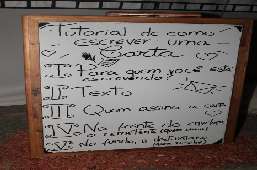 Tutorial de como
escrever uma
Carta
I. Para quem você está
escrevendo
II. Texto
III. Quem assina a carta
IV. Na frente do envelope
o remetente (quem envia)
V. No fundo, o destinatário